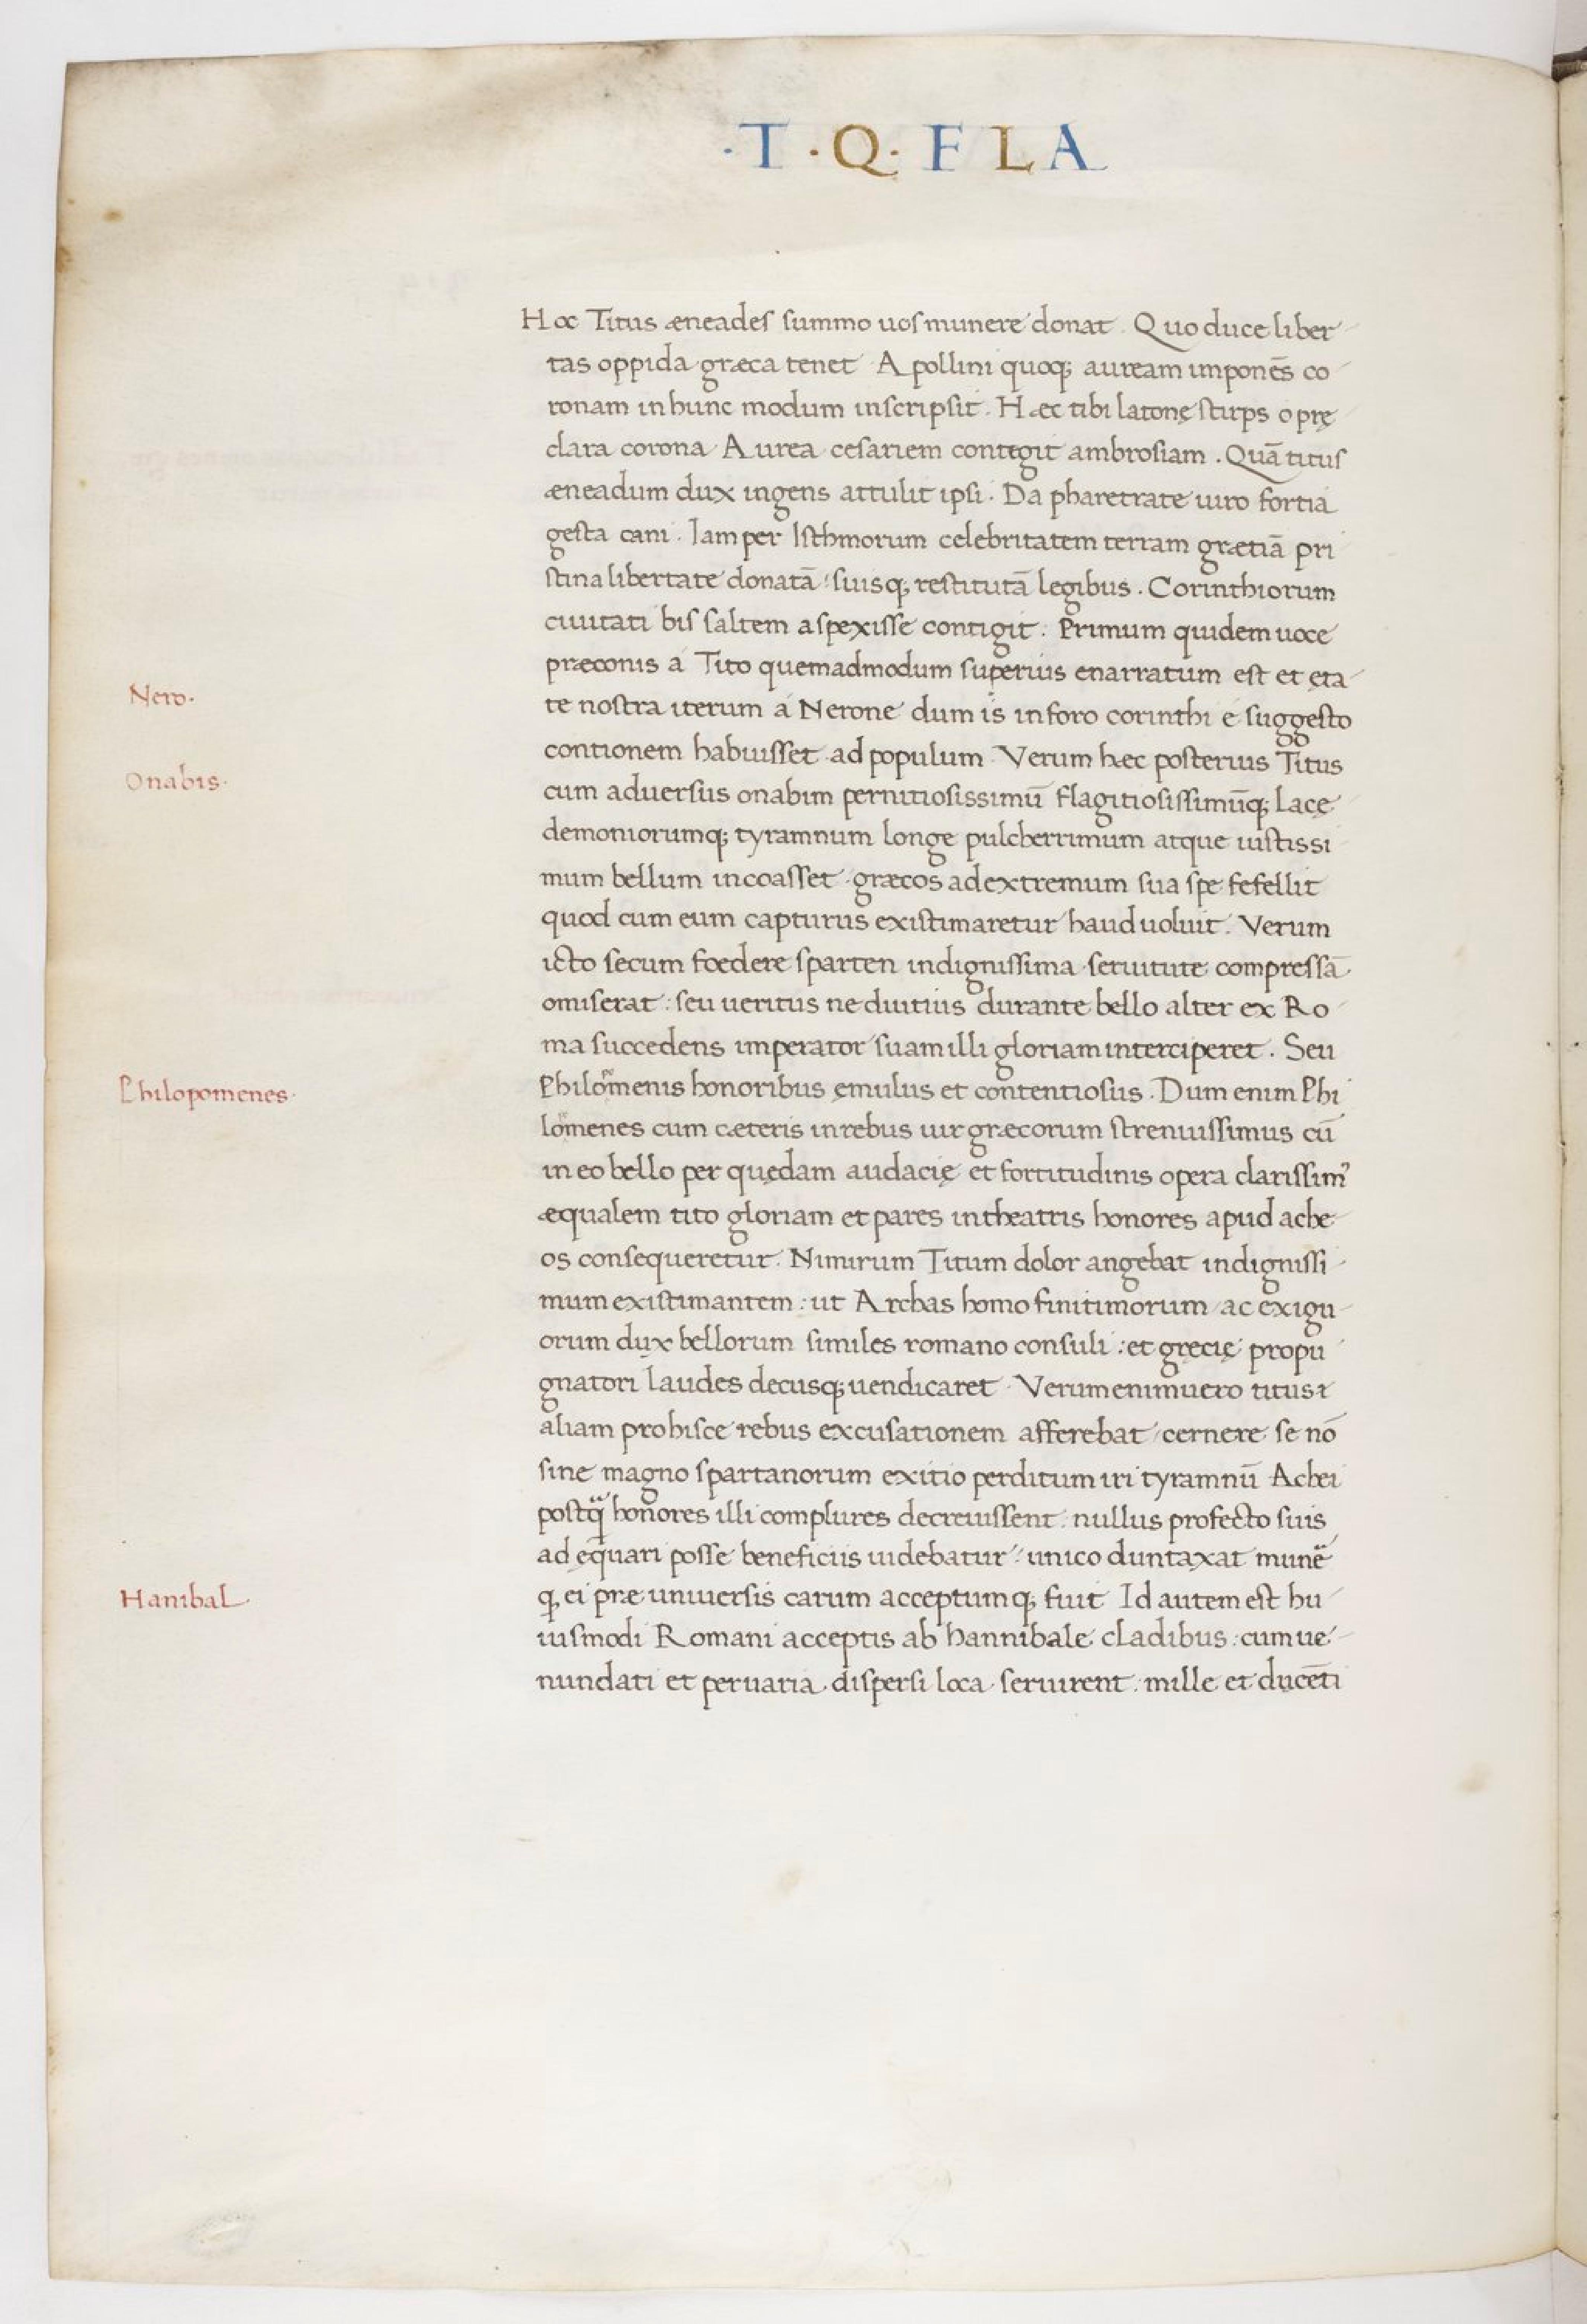 ·T·Q·FLA
Hoc Titus æneades summo uos munere donat. Quo duce liber
tas oppida græca tenet. Apollini quoq; auream imponēs co
ronam in hunc modum inscripsit. Hæc tibi latonę stirps o prę
clara corona Aurea cesariem contegit ambrosiam. Quā titus
æneadum dux ingens attulit ipsi. Da pharetrate uiro fortia
gesta cani. Iam per Isthmorum celebritatem terram grætiā pri
stina libertate donatā: suisq; restitutā legibus. Corinthiorum
ciuitati bis saltem aspexisse contigit. Primum quidem uoce
præconis á Tito quemadmodum superius enarratum est et ęta
Nero.
te nostra iterum á Nerone dum is in foro corinthi é suggesto
contionem habuisset ad populum. Verum hæc posterius Titus
Onabis.
cum aduersus onabim pernitiosissimū flagitiosissimūq; Lacę
demoniorumq; tyramnum longe pulcherrimum atque iustissi
mum bellum incoasset græcos ad extremum sua spe fefellit
quod cum eum capturus existimaretur haud uoluit. Verum
icto secum foedere sparten indignissima seruitute compressā
omiserat: seu ueritus ne diutius durante bello alter ex Ro
ma succedens imperator suam illi gloriam interciperet. Seu
Philopomenes.
Philomenis honoribus ęmulus et contentiosus. Dum enim Phi
lomenes cum cæteris in rebus uir græcorum strenuissimus cū
in eo bello per quędam audacię et fortitudinis opera clarissim᾽
æqualem tito gloriam et pares in theatris honores apud ache
os consequeretur. Nimirum Titum dolor angebat indignissi
mum existimantem: ut Archas homo finitimorum ac exigu
orum dux bellorum similes romano consuli: et gręcię propu
gnatori laudes decusq; uendicaret. Verum enimuero titus
aliam pro hisce rebus excusationem afferebat cernere se nō
sine magno spartanorum exitio perditum iri tyramnū Achei
postq̄ honores illi complures decreuissent: nullus profecto suis
ad ęquari posse beneficiis uidebatur: unico duntaxat mune
Hanibal.
q; ei præ uniuersis carum acceptumq; fuit. Id autem est hu
iusmodi Romani acceptis ab hannibale cladibus: cum ue
nundati et per uaria dispersi loca seruirent: mille et ducēti